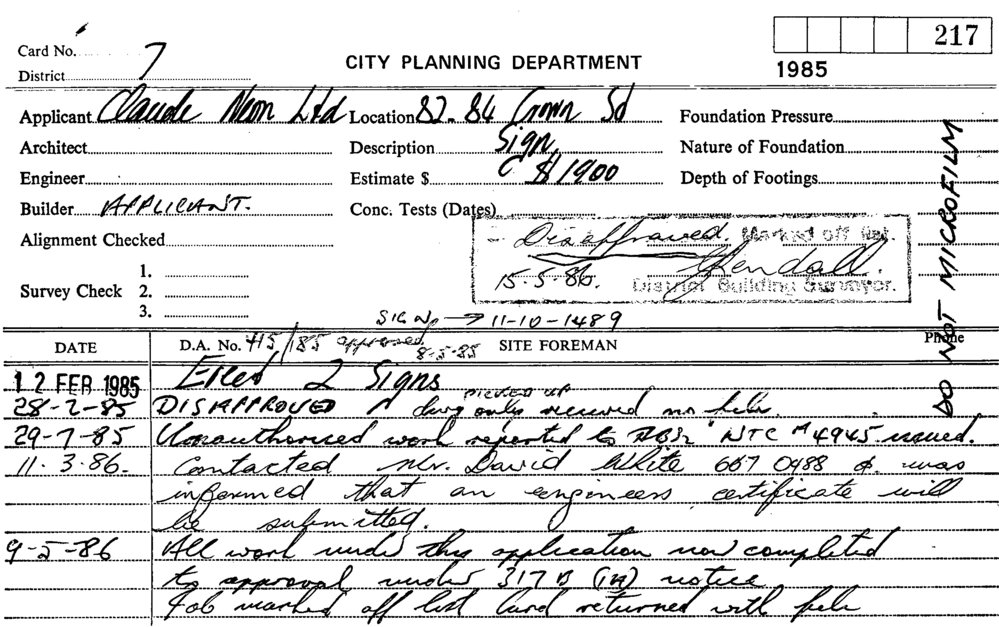 217
Card No. 7
CITY PLANNING DEPARTMENT
1985
District
Applicant Claude Neon Ltd Location 82-84 Crown St Foundation Pressure
Architect Description Sign Nature of Foundation
Engineer Estimate $ $1900 Depth of Footings
Builder APPLICANT. Conc. Tests (Dates)
Alignment Checked
Disapproved Marked off list.
Survey Check 1. 2. 3.
15-5-86. Kendall.
District Building Surveyor.
DO NOT MICROFILM
SIGN → 11-10-1489
DATE D.A. No. 415/185 approved 8-5-85 SITE FOREMAN Phone
12 FEB 1985 Erect 2 Signs
28-2-85 DISAPPROVED dwg only PICKED UP received no file.
29-7-85 Unauthorised work reported to NTC 4945 issued.
11.3.86. Contacted Mr. David White 667 0488 & was
informed that an engineers certificate will
be submitted.
9-5-86 All work under this application now completed
to approval under 317B (1A) notice
Job marked off list card returned with file